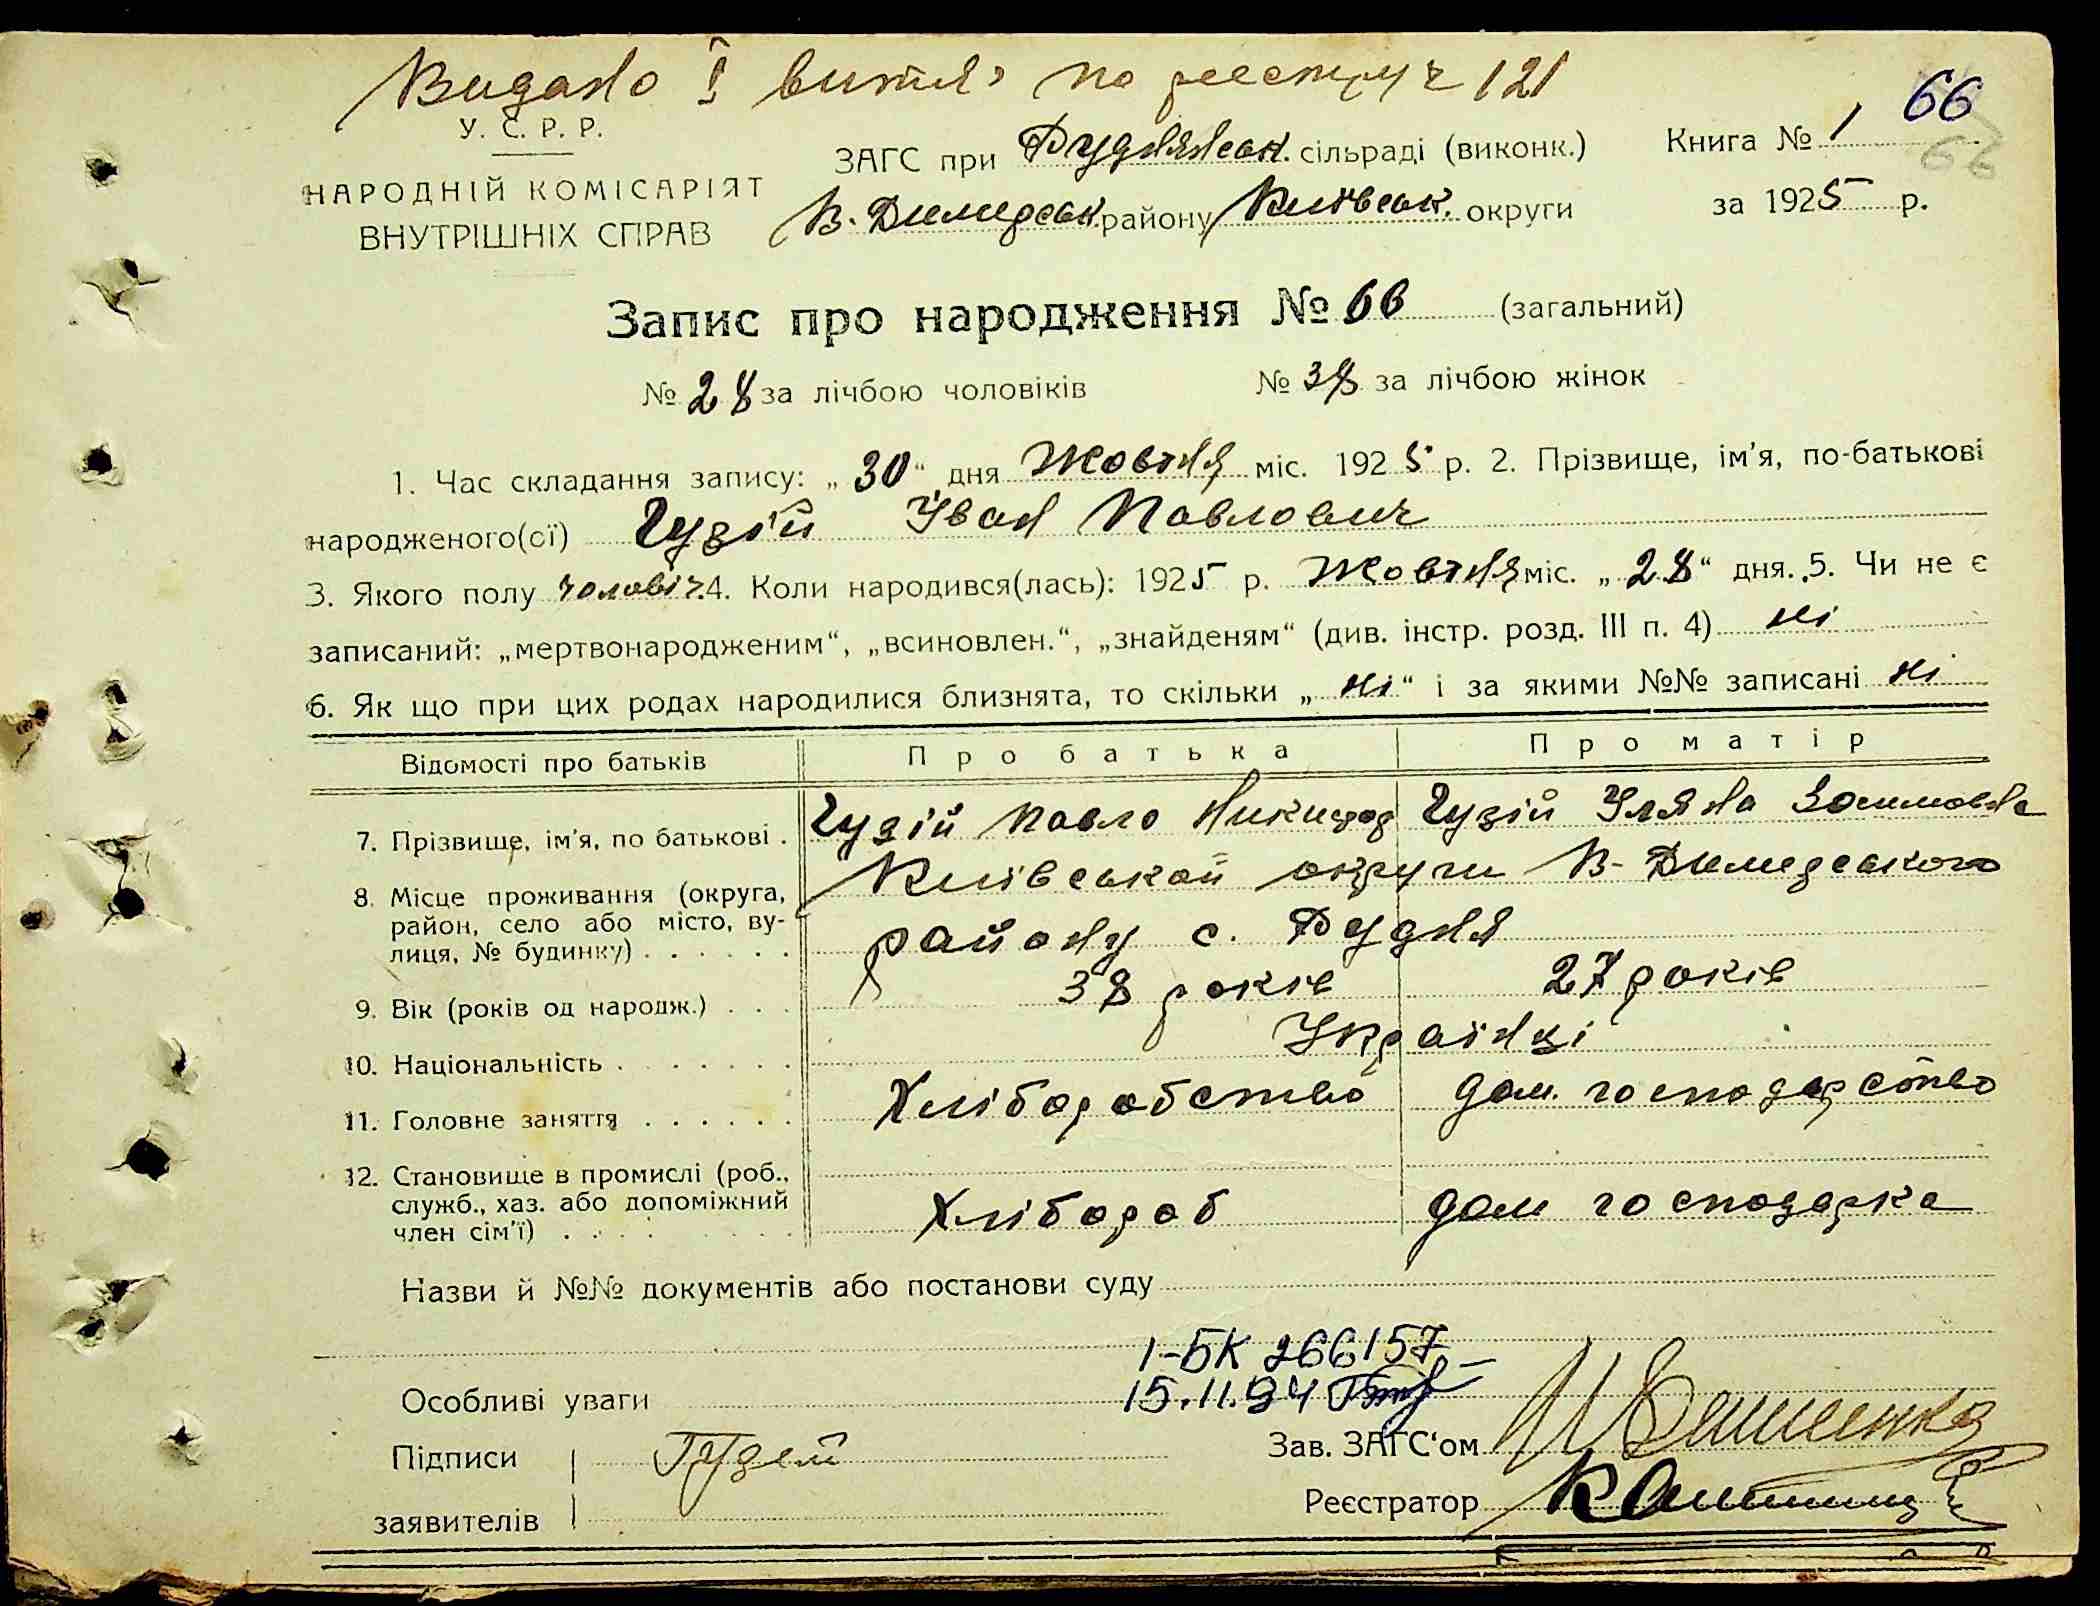 Видано I витяг по реестру № 121
66
66
У. С. Р. Р.
НАРОДНІЙ КОМІСАРІЯТ
ВНУТРІШНІХ СПРАВ
ЗАГС при Руднянськ. сільраді (виконк.)
В. Димерськ. району Київськ. округи
Книга № 1
за 1925 р.
Запис про народження № 66 (загальний)
№ 28 за лічбою чоловіків № 38 за лічбою жінок
1. Час складання запису: „30“ дня Жовтня міс. 1925 р. 2. Прізвище, ім'я, по-батькові
народженого(сї) Гузій Іван Павлович
3. Якого полу чоловіч. 4. Коли народився(лась): 1925 р. Жовтня міс. „28“ дня. 5. Чи не є
записаний: „мертвонародженим“, „всиновлен.“, „знайденям“ (див. інстр. розд. III п. 4) ні
6. Як що при цих родах народилися близнята, то скільки „ні“ і за якими №№ записані ні
Відомості про батьків Про батька Про матір
7. Прізвище, ім'я, по батькові . Гузій Павло Никифор Гузій Уляна Зосимовна
8. Місце проживання (округа,
район, село або місто, ву-
лиця, № будинку) . . . . . .
Київськой округи В-Димерського
району с. Рудня
9. Вік (років од народж.) . . . 38 років 27 років
10. Національність . . . . . . . Українці
11. Головне заняття . . . . . . Хліборобство дом. господарство
12. Становище в промислі (роб.,
служб., хаз. або допоміжний
член сім'ї) . . . . . . . .
Хлібороб дом господарка
Назви й №№ документів або постанови суду
1-БК 266157
Особливі уваги 15.11.94
Підписи
заявителів
Гузей
Зав. ЗАГС'ом
Реєстратор